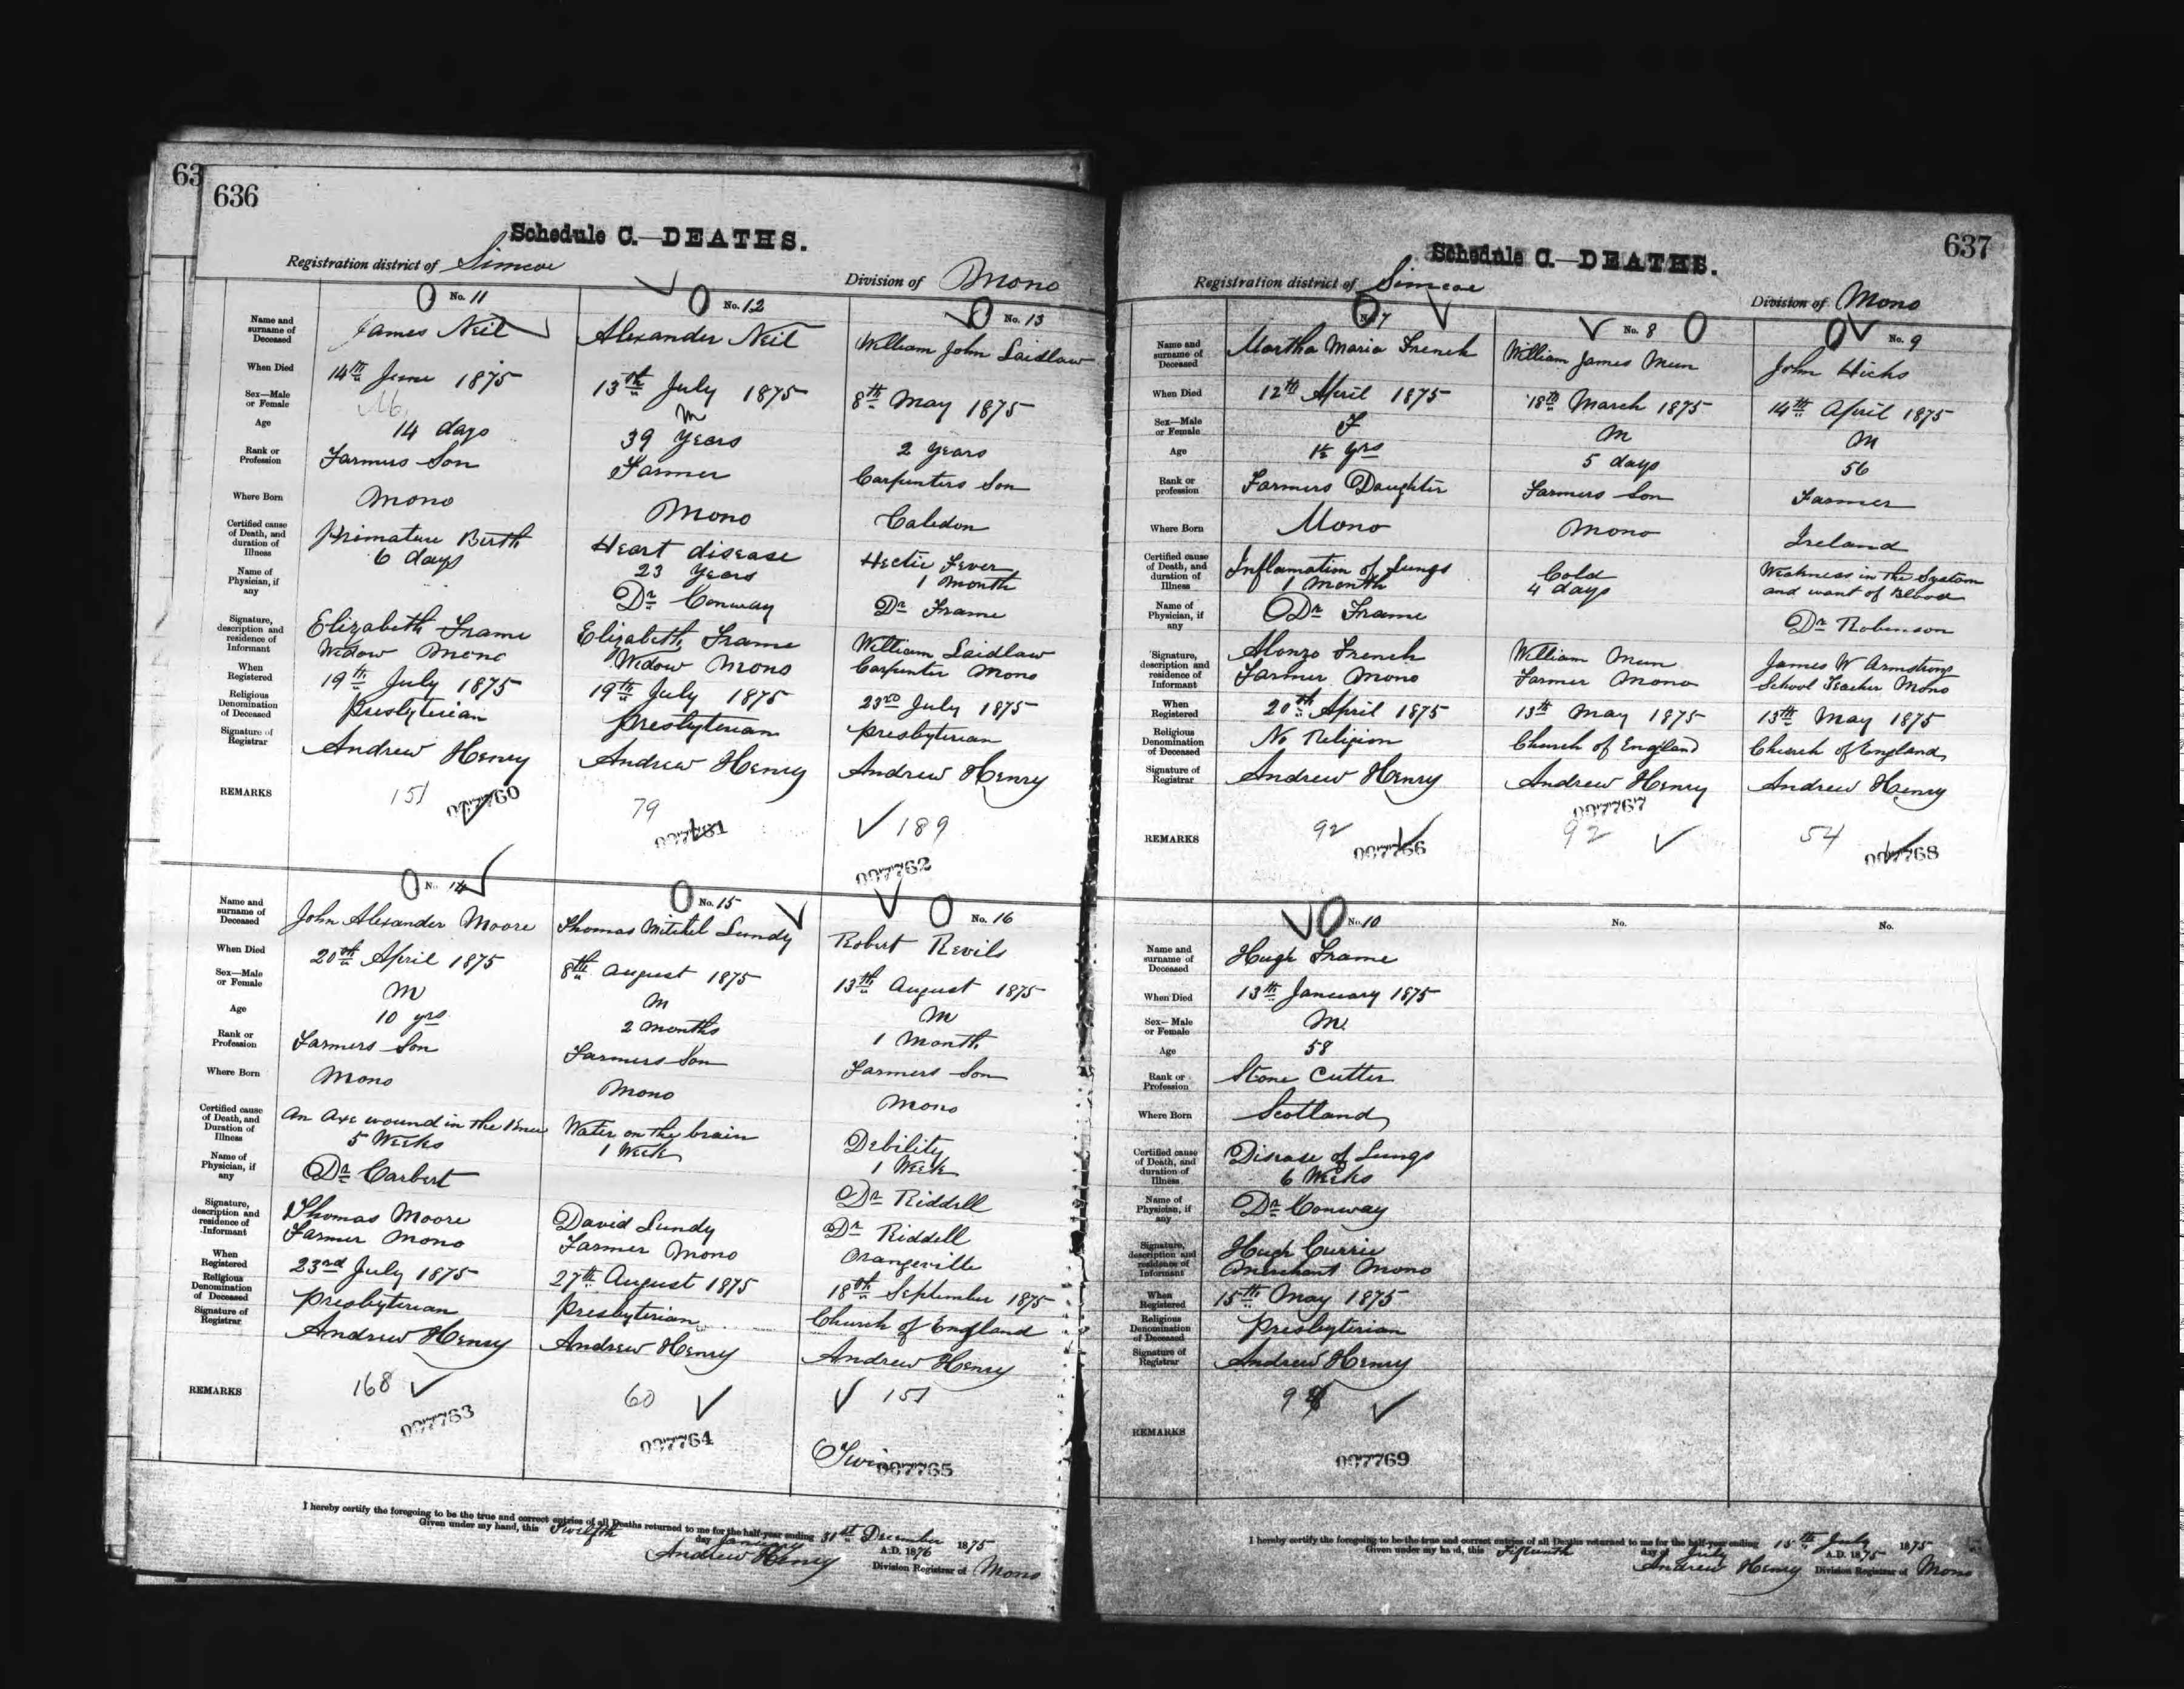 63
636
Schedule C.—DEATHS.
Registration district of Simcoe
Division of Mono
No. 11
No. 12
No. 13
Name and surname of Deceased
James Neil
Alexander Neil
William John Laidlaw
When Died
14th June 1875
13th July 1875
8th May 1875
Sex—Male or Female
M
m
Age
14 days
39 years
2 years
Rank or Profession
Farmers Son
Farmer
Carpenters Son
Where Born
Mono
Mono
Caledon
Certified cause of Death, and duration of Illness
Primature Birth
6 days
Heart disease
23 years
Hectic Fever
1 month
Name of Physician, if any
Dr Conway
Dr Frame
Signature, description and residence of Informant
Elizabeth Frame
Widow Mono
Elizabeth Frame
Widow Mono
William Laidlaw
Carpenter Mono
When Registered
19th July 1875
19th July 1875
23rd July 1875
Religious Denomination of Deceased
Presbyterian
Presbyterian
Presbyterian
Signature of Registrar
Andrew Henry
Andrew Henry
Andrew Henry
REMARKS
151
79
189
007762
No. 14
No. 15
No. 16
Name and surname of Deceased
John Alexander Moore
Thomas Mitchel Lundy
Robert Revils
When Died
20th April 1875
8th August 1875
13th August 1875
Sex—Male or Female
M
m
m
Age
10 yrs
2 months
1 Month
Rank or Profession
Farmers Son
Farmers Son
Farmers Son
Where Born
Mono
Mono
Mono
Certified cause of Death, and Duration of Illness
An Axe wound in the Knee
5 Weeks
Water on the brain
1 Week
Debility
1 Week
Name of Physician, if any
Dr Carbert
Dr Riddell
Signature, description and residence of Informant
Thomas Moore
Farmer Mono
David Lundy
Farmer Mono
Dr Riddell
Orangeville
When Registered
23rd July 1875
27th August 1875
18th September 1875
Religious Denomination of Deceased
Presbyterian
Presbyterian
Church of England
Signature of Registrar
Andrew Henry
Andrew Henry
Andrew Henry
REMARKS
168
60
151
007763
007764
Twin
007765
I hereby certify the foregoing to be the true and correct entries of all Deaths returned to me for the half-year ending 31st December 1875
Given under my hand, this Twelfth day January A.D. 1876
Andrew Henry Division Registrar of Mono
637
Schedule C.—DEATHS.
Registration district of Simcoe
Division of Mono
No. 7
No. 8
No. 9
Name and surname of Deceased
Martha Maria French
William James Mun
John Hicks
When Died
12th April 1875
18th March 1875
14th April 1875
Sex—Male or Female
F
m
m
Age
yrs
5 days
56
Rank or profession
Farmers Daughter
Farmers Son
Farmer
Where Born
Mono
Mono
Ireland
Certified cause of Death, and duration of Illness
Inflamation of Lungs
1 Month
Cold
4 days
Weakness in the System
and want of Blood
Name of Physician, if any
Dr Frame
Dr Robinson
Signature, description and residence of Informant
Alonzo French
Farmer Mono
William Mun
Farmer Mono
James W Armstrong
School Teacher Mono
When Registered
20th April 1875
13th May 1875
13th May 1875
Religious Denomination of Deceased
No Religion
Church of England
Church of England
Signature of Registrar
Andrew Henry
Andrew Henry
Andrew Henry
REMARKS
92
92
54
007766
007767
007768
No. 10
No.
No.
Name and surname of Deceased
Hugh Frame
When Died
13th January 1875
Sex—Male or Female
M
Age
58
Rank or Profession
Stone Cutter
Where Born
Scotland
Certified cause of Death, and duration of Illness
Disease of Lungs
6 Weeks
Name of Physician, if any
Dr Conway
Signature, description and residence of Informant
Hugh Currie
Merchant Mono
When Registered
15th May 1875
Religious Denomination of Deceased
Presbyterian
Signature of Registrar
Andrew Henry
REMARKS
007769
I hereby certify the foregoing to be the true and correct entries of all Deaths returned to me for the half-year ending 15th July 1875
Given under my hand, this Fifteenth day of July A.D. 1875
Andrew Henry Division Registrar of Mono